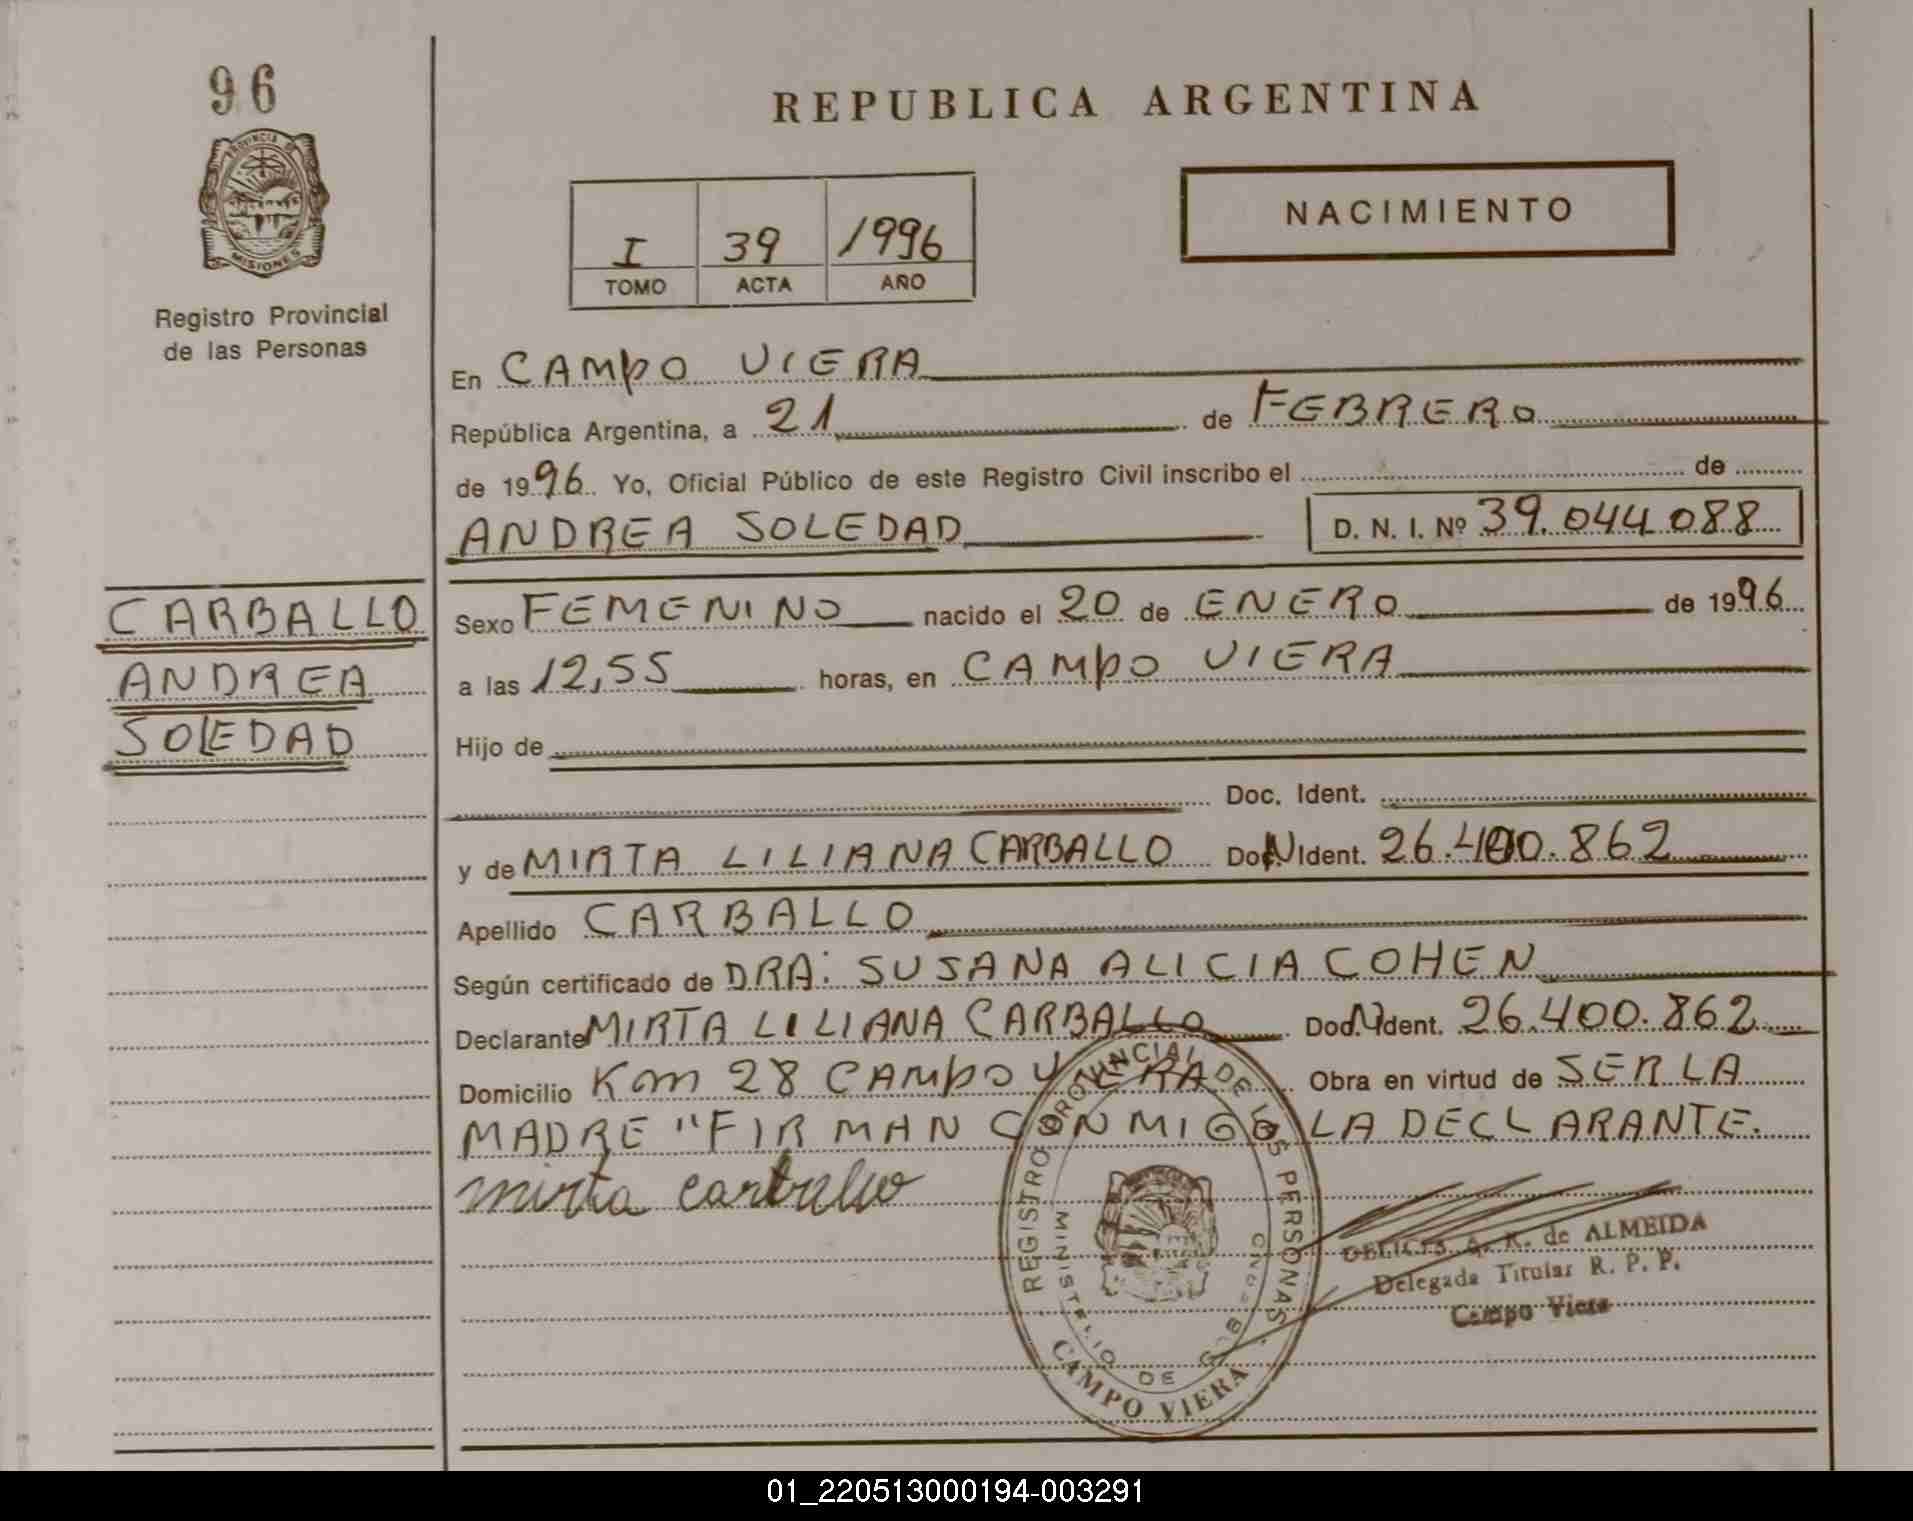 96
PROVINCIA DE
MISIONES
Registro Provincial
de las Personas
REPUBLICA ARGENTINA
I 39 1996
TOMO ACTA AÑO
NACIMIENTO
En CAMPO VIERA
República Argentina, a 21 de FEBRERO
de 1996 Yo, Oficial Público de este Registro Civil inscribo el de
ANDREA SOLEDAD D. N. I. Nº 39.044.088
CARBALLO
ANDREA
SOLEDAD
Sexo FEMENINO nacido el 20 de ENERO de 1996
a las 12,55 horas, en CAMPO VIERA
Hijo de
Doc. Ident.
y de MIRTA LILIANA CARBALLO Doc. Ident. 26.400.862
Apellido CARBALLO
Según certificado de DRA: SUSANA ALICIA COHEN
Declarante MIRTA LILIANA CARBALLO Doc. Ident. 26.400.862
Domicilio Km 28 CAMPO VIERA Obra en virtud de SER LA
MADRE "FIRMAN CONMIGO LA DECLARANTE.
mirta carballo
REGISTRO PROVINCIAL DE LAS PERSONAS
MINISTERIO DE GOB
CAMPO VIERA
A. R. de ALMEIDA
Delegada Titular R. P. P.
Campo Viera
01_220513000194-003291